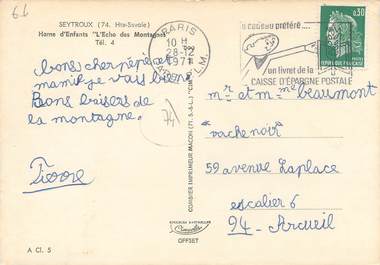 66
SEYTROUX (74. Hte-Savoie)
Home d'Enfants "L'Echo des Montagnes"
Tél. 4
bons cher pépé et
mami je vais bien
Bons baisers de
la montagne.
Pierre
A Cl. 5
COMBIER IMPRIMEUR MACON (71.-S.-L.) "CIM"
Combier
OFFSET
PARIS
10 H
28-12
1971
le cadeau préféré....
un livret de la
CAISSE D'EPARGNE POSTALE
0,30
REPUBLIQUE FRANÇAISE
mr et mme beaumont
"vache noir"
59 avenue Laplace
escalier 6
94 - Arcueil